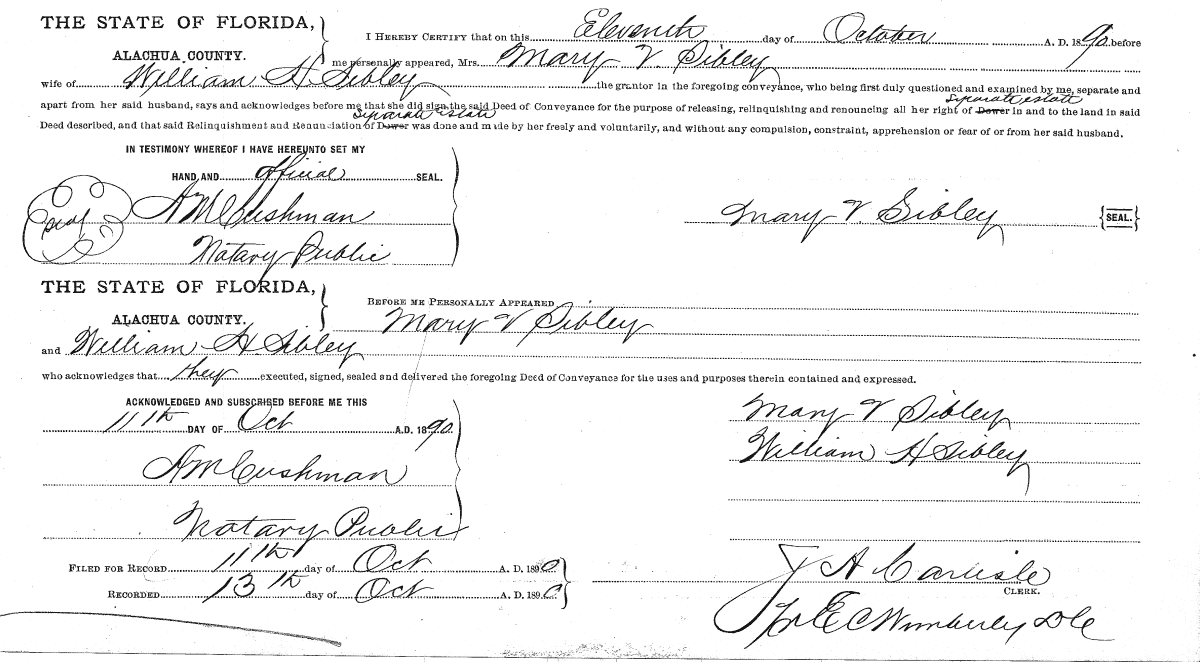 THE STATE OF FLORIDA,
ALACHUA COUNTY.
I HEREBY CERTIFY that on this Eleventh day of October A. D. 1890 before
me personally appeared, Mrs. Mary V. Sibley
wife of William H. Sibley the grantor in the foregoing conveyance, who being first duly questioned and examined by me, separate and
separate estate
apart from her said husband, says and acknowledges before me that she did sign the said Deed of Conveyance for the purpose of releasing, relinquishing and renouncing all her right of Dower in and to the land in said
separate estate
Deed described, and that said Relinquishment and Renunciation of Dower was done and made by her freely and voluntarily, and without any compulsion, constraint, apprehension or fear of or from her said husband.
IN TESTIMONY WHEREOF I HAVE HEREUNTO SET MY
HAND AND official SEAL.
Seal A M Cushman
Notary Public
Mary V. Sibley {SEAL.}
THE STATE OF FLORIDA,
ALACHUA COUNTY.
BEFORE ME PERSONALLY APPEARED
Mary V Sibley
and William H. Sibley
who acknowledges that they executed, signed, sealed and delivered the foregoing Deed of Conveyance for the uses and purposes therein contained and expressed.
ACKNOWLEDGED AND SUBSCRIBED BEFORE ME THIS
11th DAY OF Oct A.D. 1890
A M Cushman
Notary Public
Mary V Sibley
William H Sibley
FILED FOR RECORD 11th day of Oct A. D. 1890
RECORDED 13th day of Oct A. D. 1890
J A Carlisle
CLERK.
Per E C Wimberley D C